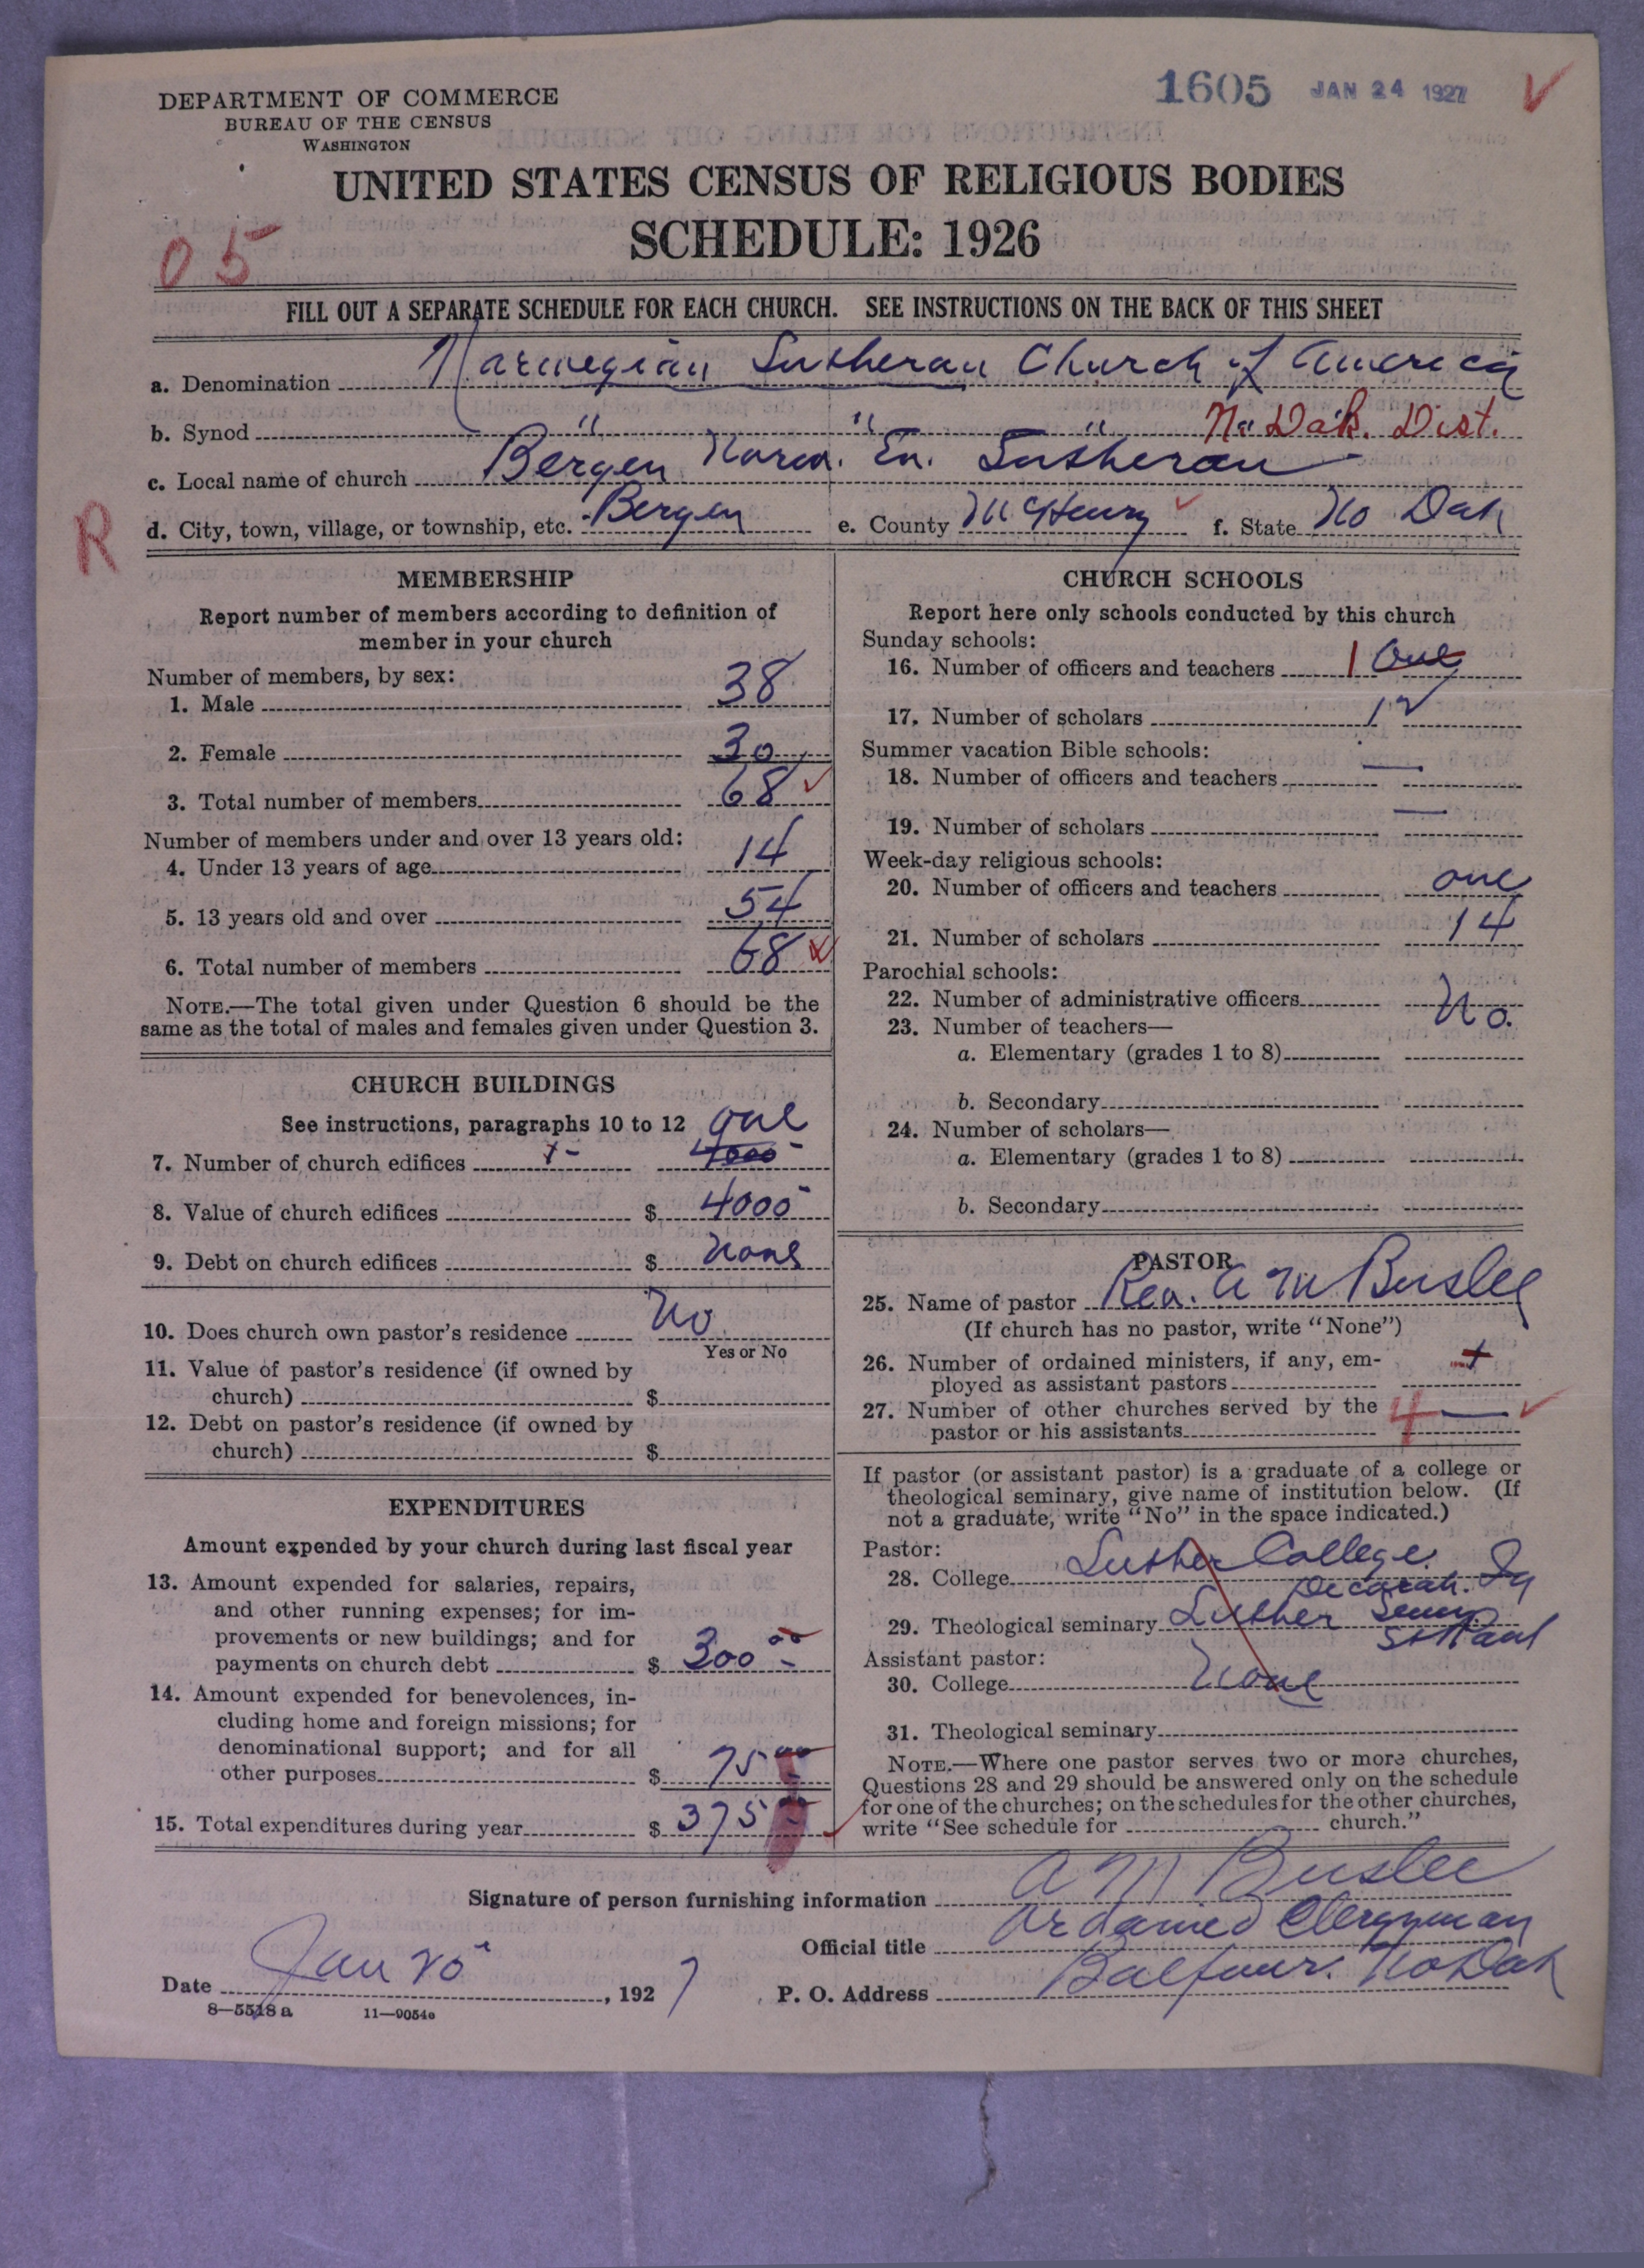 DEPARTMENT OF COMMERCE
BUREAU OF THE CENSUS
WASHINGTON
1605 JAN 24 1927
UNITED STATES CENSUS OF RELIGIOUS BODIES
SCHEDULE: 1926
05
FILL OUT A SEPARATE SCHEDULE FOR EACH CHURCH. SEE INSTRUCTIONS ON THE BACK OF THIS SHEET
a. Denomination Norwegian Lutheran Church of America
b. Synod " " " No. Dak. Dist.
c. Local name of church Bergen Norw. Ev. Lutheran
R
d. City, town, village, or township, etc. Bergen e. County McHenry f. State No Dak
MEMBERSHIP
Report number of members according to definition of
member in your church
Number of members, by sex:
1. Male 38
2. Female 30
3. Total number of members 68
Number of members under and over 13 years old:
4. Under 13 years of age 14
5. 13 years old and over 54
6. Total number of members 68
NOTE.—The total given under Question 6 should be the
same as the total of males and females given under Question 3.
CHURCH BUILDINGS
See instructions, paragraphs 10 to 12 one
7. Number of church edifices 1- 4000
8. Value of church edifices $ 4000
9. Debt on church edifices $ none
10. Does church own pastor's residence No
Yes or No
11. Value of pastor's residence (if owned by
church) $
12. Debt on pastor's residence (if owned by
church) $
EXPENDITURES
Amount expended by your church during last fiscal year
13. Amount expended for salaries, repairs,
and other running expenses; for im-
provements or new buildings; and for
payments on church debt $ 300 00
14. Amount expended for benevolences, in-
cluding home and foreign missions; for
denominational support; and for all
other purposes $ 75 00
15. Total expenditures during year $ 375 00
CHURCH SCHOOLS
Report here only schools conducted by this church
Sunday schools:
16. Number of officers and teachers 1 One
17. Number of scholars 12
Summer vacation Bible schools:
18. Number of officers and teachers —
19. Number of scholars —
Week-day religious schools:
20. Number of officers and teachers one
21. Number of scholars 14
Parochial schools:
22. Number of administrative officers No.
23. Number of teachers—
a. Elementary (grades 1 to 8)
b. Secondary
24. Number of scholars—
a. Elementary (grades 1 to 8)
b. Secondary
PASTOR
25. Name of pastor Rev. A M Buslee
(If church has no pastor, write "None")
26. Number of ordained ministers, if any, em-
ployed as assistant pastors
27. Number of other churches served by the 4 —
pastor or his assistants
If pastor (or assistant pastor) is a graduate of a college or
theological seminary, give name of institution below. (If
not a graduate, write "No" in the space indicated.)
Pastor:
28. College Luther College
Decorah. Ia
29. Theological seminary Luther Semy
St Paul
Assistant pastor:
30. College None
31. Theological seminary
NOTE.—Where one pastor serves two or more churches,
Questions 28 and 29 should be answered only on the schedule
for one of the churches; on the schedules for the other churches,
write "See schedule for church."
Signature of person furnishing information A M Buslee
Official title Ordained Clergyman
Date Jan 20, 1927 P. O. Address Balfour. No Dak
8—5518 a 11—9054e